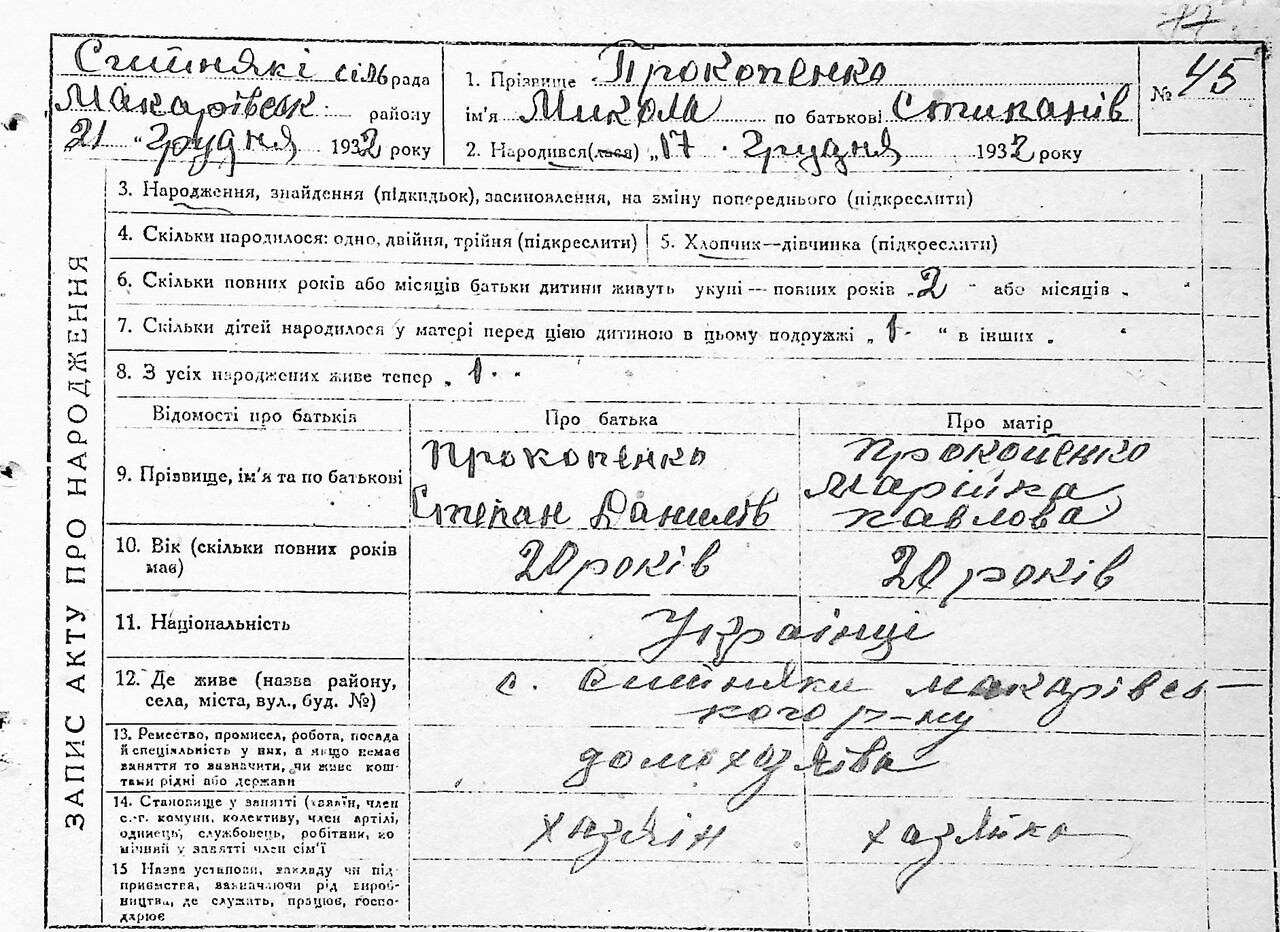 77
Ситнякі сільрада
Макарівськ району
21 "Грудня 1932 року
1. Прізвище Прокопенко
ім'я Микола по батькові Стипанів
2. Народився(лася) „17 . Грудня 1932 року
№ 45
ЗАПИС АКТУ ПРО НАРОДЖЕННЯ
3. Народження, знайдення (підкидьок), засиновлення, на зміну попереднього (підкреслити)
4. Скільки народилося: одно, двійня, трійня (підкреслити)
5. Хлопчик—дівчинка (підкреслити)
6. Скільки повних років або місяців батьки дитини живуть укупі — повних років „2 " або місяців „ "
7. Скільки дітей народилося у матері перед цією дитиною в цьому подружжі „ 1 · " в інших „ "
8. З усіх народжених живе тепер „ 1 · "
Відомості про батьків
Про батька
Про матір
9. Прізвище, ім'я та по батькові
Прокопенко
Степан Данилів
Прокопенко
Марійка
Павлова
10. Вік (скільки повних років
має)
20 років
20 років
11. Національність
Українці
12. Де живе (назва району,
села, міста, вул., буд. №)
с. Ситняки Макарівсь-
кого р-ну
13. Ремество, промисел, робота, посада
й спеціяльність у них, а якщо немає
заняття то зазначити, чи живе кош-
тами рідні або держави
домохазяїва
14. Становище у занятті (хазяїн, член
с.-г. комуни, колективу, член артілі,
одинець, службовець, робітник, по
мічний у занятті член сім'ї
хазяін
хазяйка
15 Назва установи, закладу чи під
приємства, зазначаючи рід вироб-
ництва, де служать, працює, госпо-
дарює